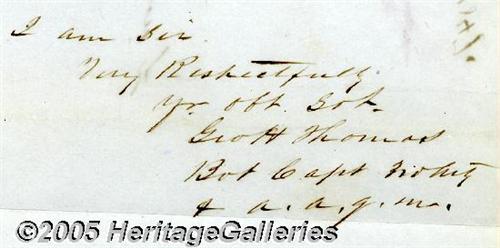 I am Sir
Very Respectfully
yr. obt. Svt.
Geo H Thomas
Bvt Capt 3rd Arty
& a. a. q. m.
©2005 HeritageGalleries